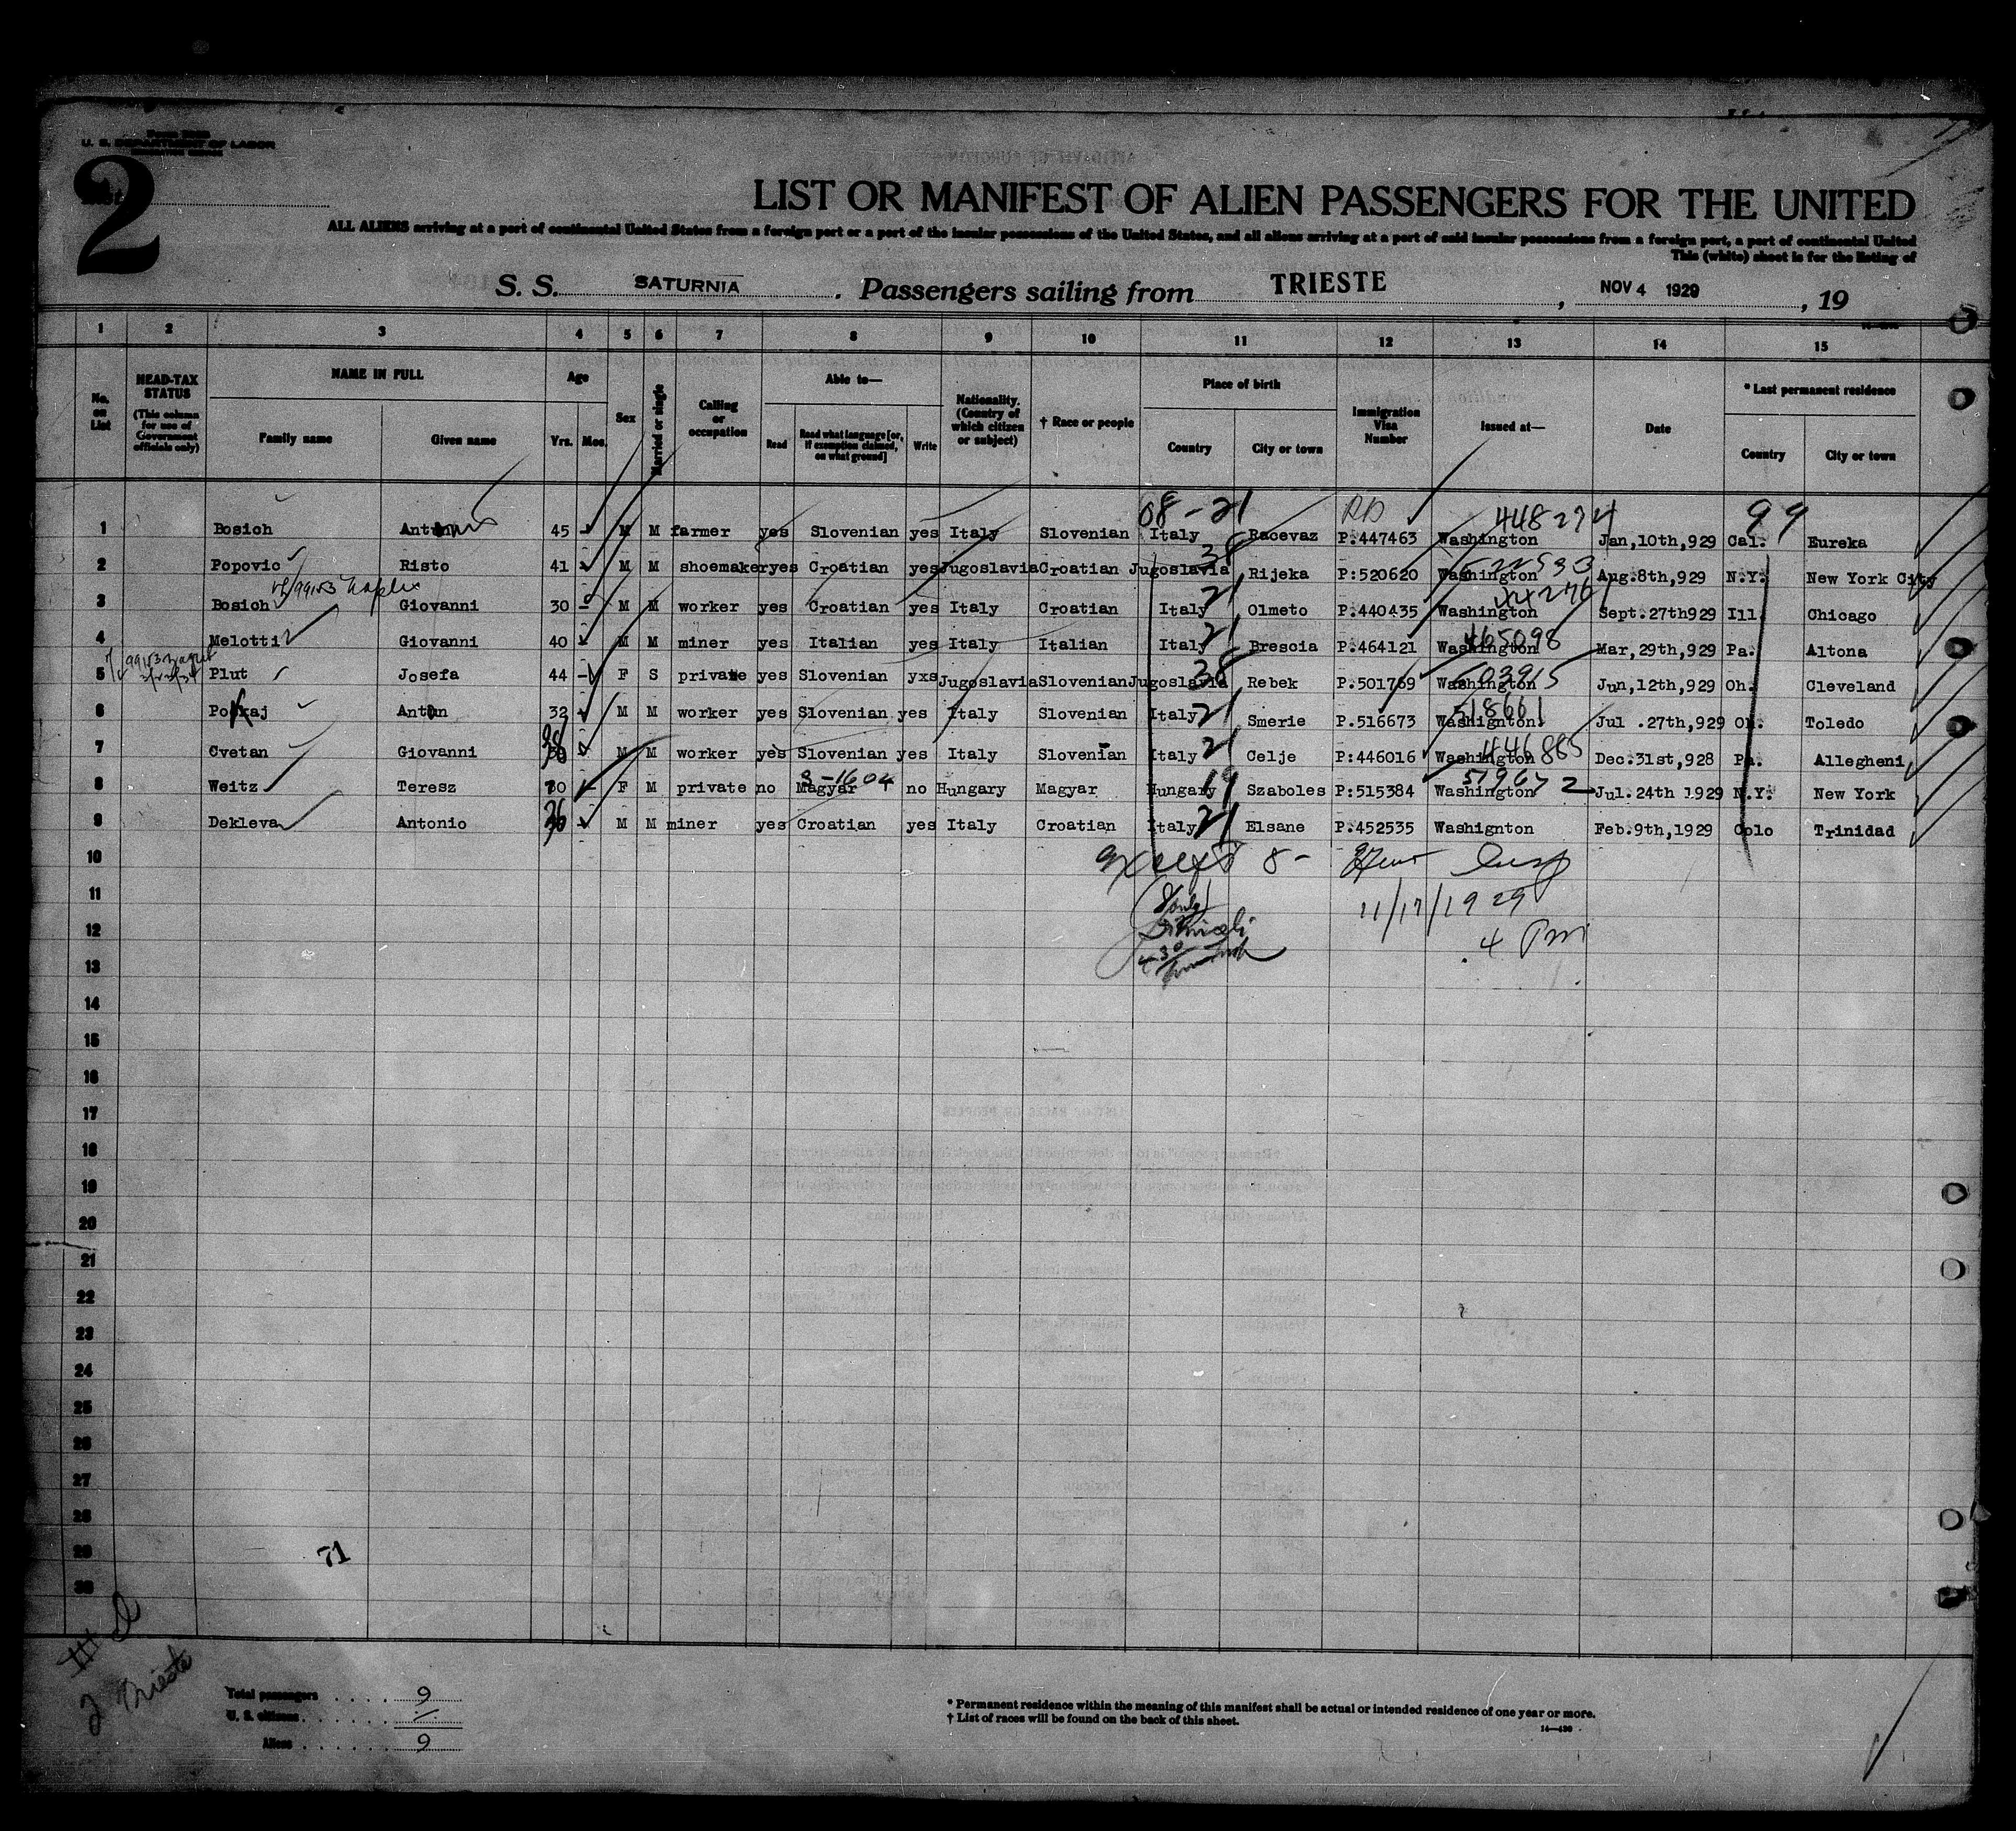 U. S. DEPARTMENT OF LABOR
2
LIST OR MANIFEST OF ALIEN PASSENGERS FOR THE UNITED
ALL ALIENS arriving at a port of continental United States from a foreign port or a port of the insular possessions of the United States, and all aliens arriving at a port of said insular possessions from a foreign port, a port of continental United
This (white) sheet is for the listing of
S. S. SATURNIA . Passengers sailing from TRIESTE , NOV 4 1929 , 19
1 2 3 4 5 6 7 8 9 10 11 12 13 14 15
No. on List
HEAD-TAX STATUS (This column for use of Government officials only)
NAME IN FULL
Family name Given name
Age
Yrs. Mos.
Sex
Married or single
Calling or occupation
Able to—
Read Read what language [or, if exemption claimed, on what ground] Write
Nationality. (Country of which citizen or subject)
† Race or people
Place of birth
Country City or town
Immigration Visa Number
Issued at—
Date
* Last permanent residence
Country City or town
08-21 448274 99
1 Bosich 45 M M farmer yes Slovenian yes Italy Slovenian Italy Racevaz P:447463 Washington Jan,10th,929 Cal. Eureka
2 Popovic Risto 41 M M shoemaker yes Croatian yes Jugoslavia Croatian Jugoslavia 38 Rijeka P:520620 Washington Aug.8th,929 N.Y. New York City
3 Bosich Giovanni 30 M M worker yes Croatian yes Italy Croatian Italy 21 Olmeto P:440435 Washington Sept.27th929 Ill. Chicago
4 Melotti Giovanni 40 M M miner yes Italian yes Italy Italian Italy 21 Brescia P:464121 Washington 465098 Mar,29th,929 Pa. Altona
5 Plut Josefa 44 F S private yes Slovenian yxs Jugoslavia Slovenian Jugoslavia 38 Rebek P.501769 Washington 503915 Jun,12th,929 Oh. Cleveland
6 Anton 32 M M worker yes Slovenian yes Italy Slovenian Italy 21 Smerie P.516673 Washignton 518661 Jul .27th,929 Oh. Toledo
7 Cvetan Giovanni M M worker yes Slovenian yes Italy Slovenian Italy 21 Celje P:446016 Washington 446865 Dec.31st,928 Pa. Allegheni
8 Weitz Teresz F M private no Magyar 3-1604 no Hungary Magyar Hungary 19 Szaboles P:515384 Washington 519672 Jul.24th 1929 N.Y. New York
9 Dekleva Antonio M M miner yes Croatian yes Italy Croatian Italy 21 Elsane P.452535 Washignton Feb.9th,1929 Colo Trinidad
10 except 8-
11 11/17/1929
12 4 Pm
13
14
15
16
17
18
19
20
21
22
23
24
25
26
27
28
29
30
71
2 Trieste
Total passengers . . . . 9
U. S. citizens . . . . . .
Aliens . . . . . . 9
* Permanent residence within the meaning of this manifest shall be actual or intended residence of one year or more.
† List of races will be found on the back of this sheet.
14—430